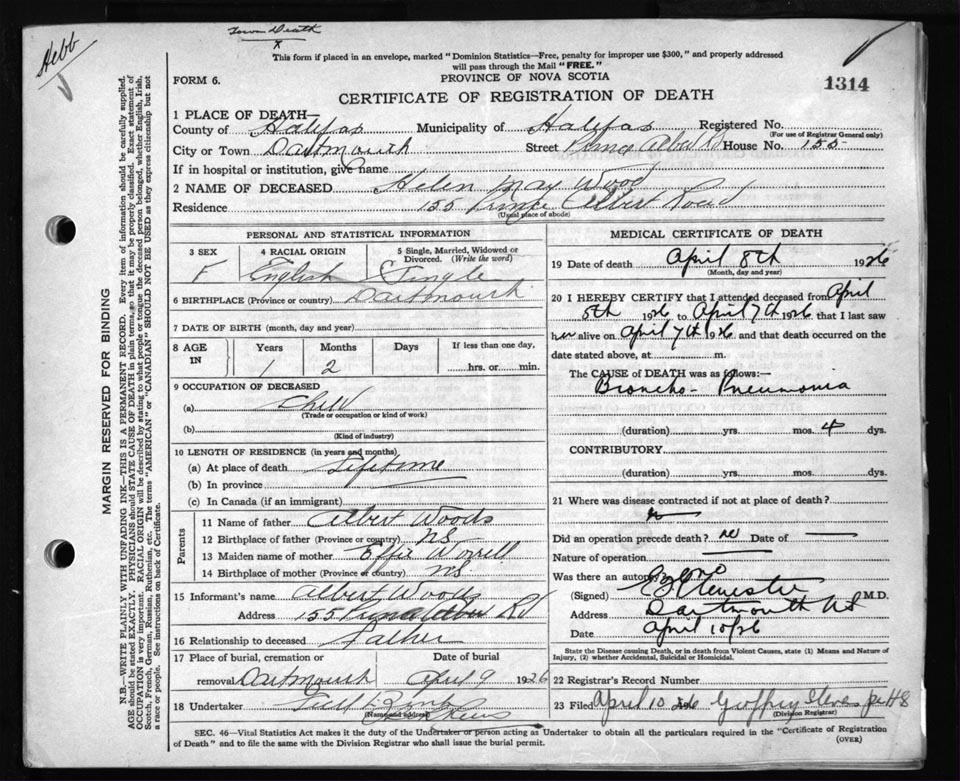 Town Death
x
Hebb
This form if placed in an envelope, marked "Dominion Statistics—Free, penalty for improper use $300," and properly addressed
will pass through the Mail "FREE."
FORM 6.
PROVINCE OF NOVA SCOTIA
1314
CERTIFICATE OF REGISTRATION OF DEATH
1 PLACE OF DEATH—
County of Halifax Municipality of Halifax Registered No.
(For use of Registrar General only)
City or Town Dartmouth Street Prince Albert Rd House No. 155
If in hospital or institution, give name
2 NAME OF DECEASED Helen May Wood
Residence 155 Prince Albert Road
(Usual place of abode)
PERSONAL AND STATISTICAL INFORMATION
3 SEX 4 RACIAL ORIGIN 5 Single, Married, Widowed or
Divorced. (Write the word)
F English Single
6 BIRTHPLACE (Province or country) Dartmouth
7 DATE OF BIRTH (month, day and year)
8 AGE
IN
Years Months Days If less than one day,
1 2 hrs. or min.
9 OCCUPATION OF DECEASED
(a) Child
(Trade or occupation or kind of work)
(b)
(Kind of industry)
10 LENGTH OF RESIDENCE (in years and months)
(a) At place of death Lifetime
(b) In province
(c) In Canada (if an immigrant)
Parents
11 Name of father Albert Woods
12 Birthplace of father (Province or country) NS
13 Maiden name of mother Effie Worrell
14 Birthplace of mother (Province or country) NS
15 Informant's name Albert Woods
Address 155 Prince Albert Rd
16 Relationship to deceased Father
17 Place of burial, cremation or Date of burial
removal Dartmouth April 9 1926
18 Undertaker
(Name and address)
MEDICAL CERTIFICATE OF DEATH
19 Date of death April 8th 1926
(Month, day and year)
20 I HEREBY CERTIFY that I attended deceased from April
5th 1926 to April 7th 1926 that I last saw
her alive on April 7th 1926 and that death occurred on the
date stated above, at m.
The CAUSE of DEATH was as follows:—
Broncho-Pneumonia
(duration) yrs. mos. 4 dys.
CONTRIBUTORY
(duration) yrs. mos. dys.
21 Where was disease contracted if not at place of death?
Did an operation precede death? no Date of
Nature of operation
Was there an autopsy? no
(Signed) M.D.
Address Dartmouth NS
Date April 10/26
State the Disease causing Death, or in death from Violent Causes, state (1) Means and Nature of
Injury, (2) whether Accidental, Suicidal or Homicidal.
22 Registrar's Record Number
23 Filed April 10 1926 Geoffrey
(Division Registrar)
SEC. 46—Vital Statistics Act makes it the duty of the Undertaker or person acting as Undertaker to obtain all the particulars required in the "Certificate of Registration
of Death" and to file the same with the Division Registrar who shall issue the burial permit.
(OVER)
MARGIN RESERVED FOR BINDING
N.B.—WRITE PLAINLY WITH UNFADING INK—THIS IS A PERMANENT RECORD. Every item of information should be carefully supplied.
AGE should be stated EXACTLY. PHYSICIANS should STATE CAUSE OF DEATH in plain terms, so that it may be properly classified. Exact statement of
OCCUPATION is very important. RACIAL ORIGIN will be described by stating to what people or tongue the deceased person belonged, whether English, Irish,
Scotch, French, German, Russian, Ruthenian, etc. The terms "AMERICAN" or "CANADIAN" SHOULD NOT BE USED as they express citizenship but not
a race or people. See instructions on back of Certificate.